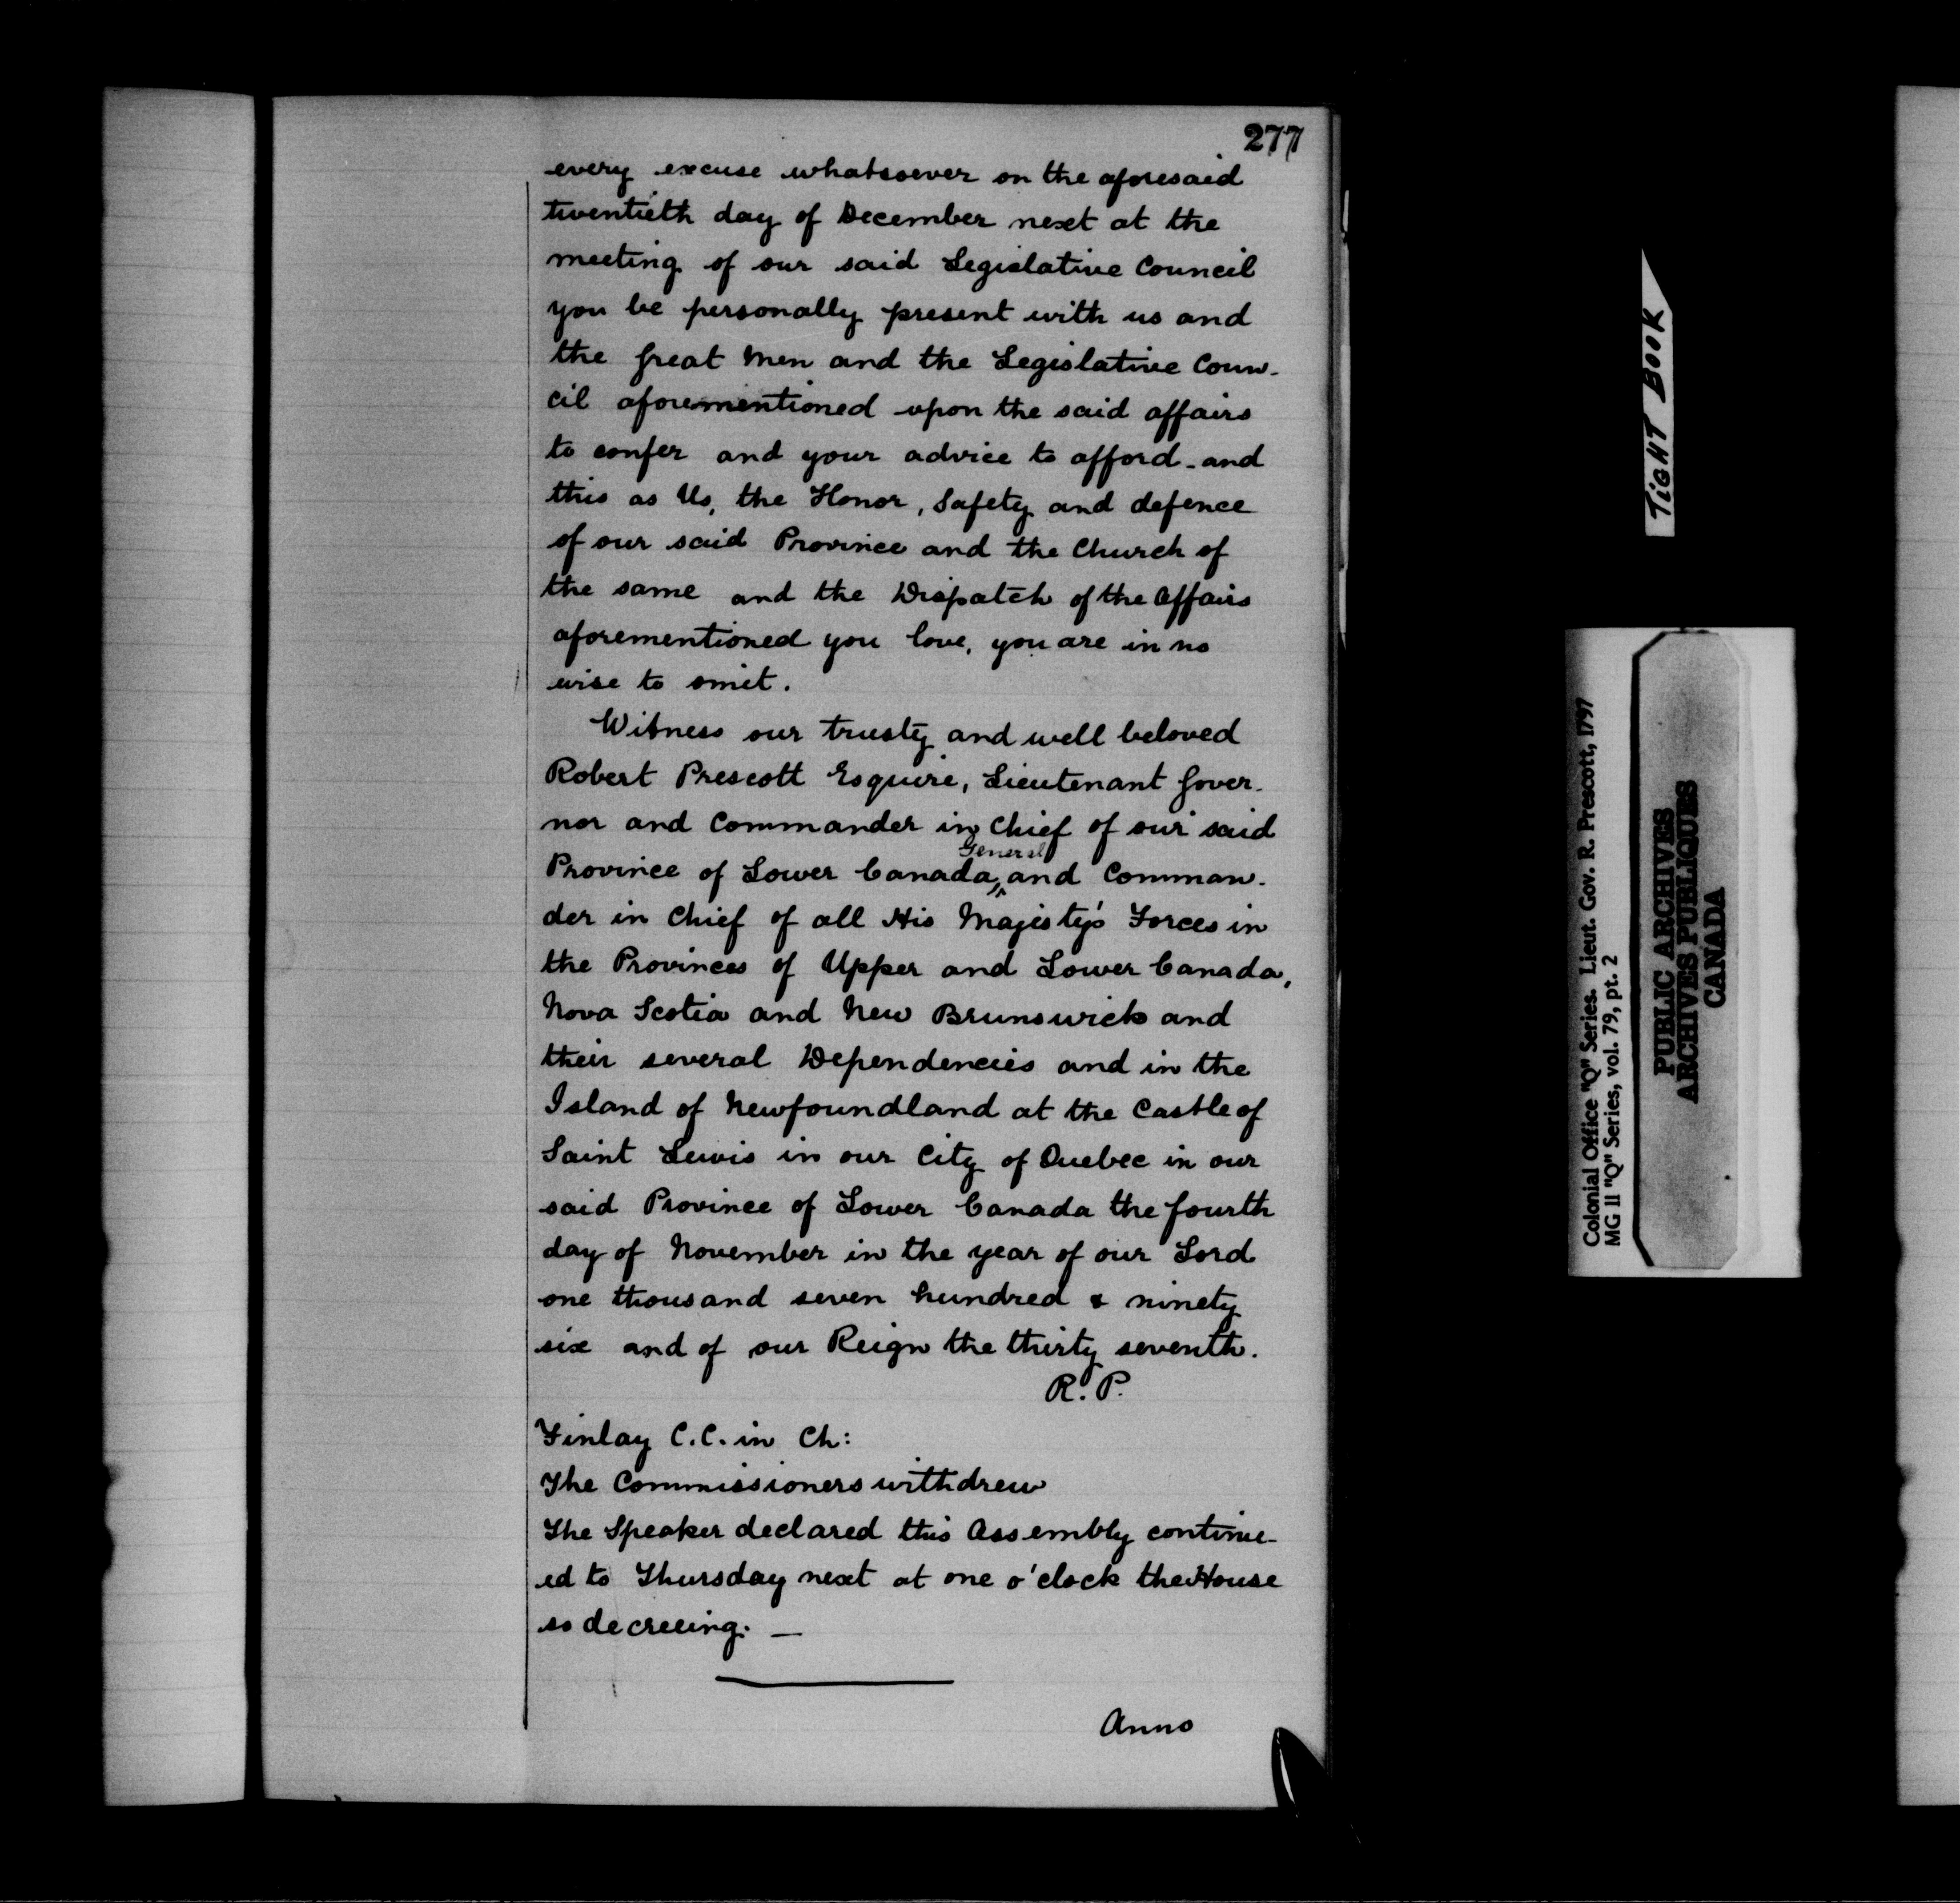 277
every excuse whatsoever on the aforesaid
twentieth day of December next at the
meeting of our said Legislative Council
you be personally present with us and
the Great Men and the Legislative Coun-
cil aforementioned upon the said affairs
to confer and your advice to afford - and
this as Us, the Honor, Safety and defence
of our said Province and the Church of
the same and the Dispatch of the Affairs
aforementioned you love, you are in no
wise to omit.
Witness our trusty and well beloved
Robert Prescott Esquire, Lieutenant Gover-
nor and Commander in Chief of our said
General
Province of Lower Canada, and Comman-
der in Chief of all His Majesty's Forces in
the Provinces of Upper and Lower Canada,
Nova Scotia and New Brunswick and
their several Dependencies and in the
Island of Newfoundland at the Castle of
Saint Lewis in our City of Quebec in our
said Province of Lower Canada the fourth
day of November in the year of our Lord
one thousand seven hundred & ninety
six and of our Reign the thirty seventh.
R. P.
Finlay C.C. in Ch:
The Commissioners withdrew
The Speaker declared this Assembly continu-
ed to Thursday next at one o'clock the House
so decreeing. —
Anno
TIGHT BOOK
Colonial Office "Q" Series. Lieut. Gov. R. Prescott, 1797
MG 11 "Q" Series, vol. 79, pt. 2
PUBLIC ARCHIVES
ARCHIVES PUBLIQUES
CANADA